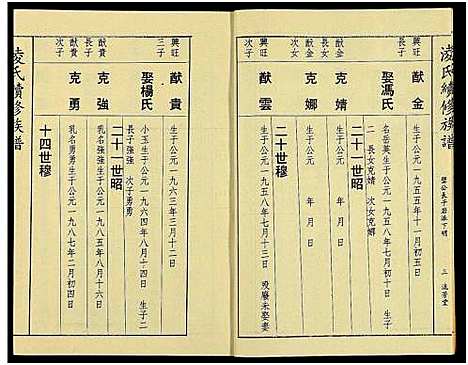 凌氏續修族譜
三 流芳堂
興旺
長子
猷金
生于公元一九五四年十一月初五日
娶馮氏
名岳英生于公元一九五八年七月初十日 生子
二 長女克婧 次女克娜
二十一世昭
猷金
長女
克婧
生于公元 年 月 日
猷金
次女
克娜
生于公元 年 月 日
二十世穆
興旺
次子
猷雲
生于公元一九五八年七月三日 殘廢未娶妻
興旺
三子
猷貴
生于公元一九六三年三月十二日
娶楊氏
小玉生于公元一九六四年八月十四日 生子二
長子強強 次子勇勇
二十一世昭
猷貴
長子
克強
乳名強強生于公元一九八五年八月十六日
猷貴
次子
克勇
乳名勇勇生于公元一九八七年二月初四日
十四世穆
凌氏續修族譜